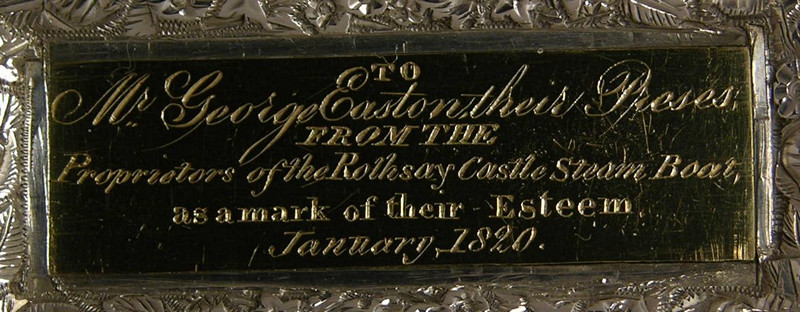 TO
Mr. George Easton, their Preses,
FROM THE
Proprietors of the Rothsay Castle Steam Boat,
as a mark of their Esteem.
January, 1820.